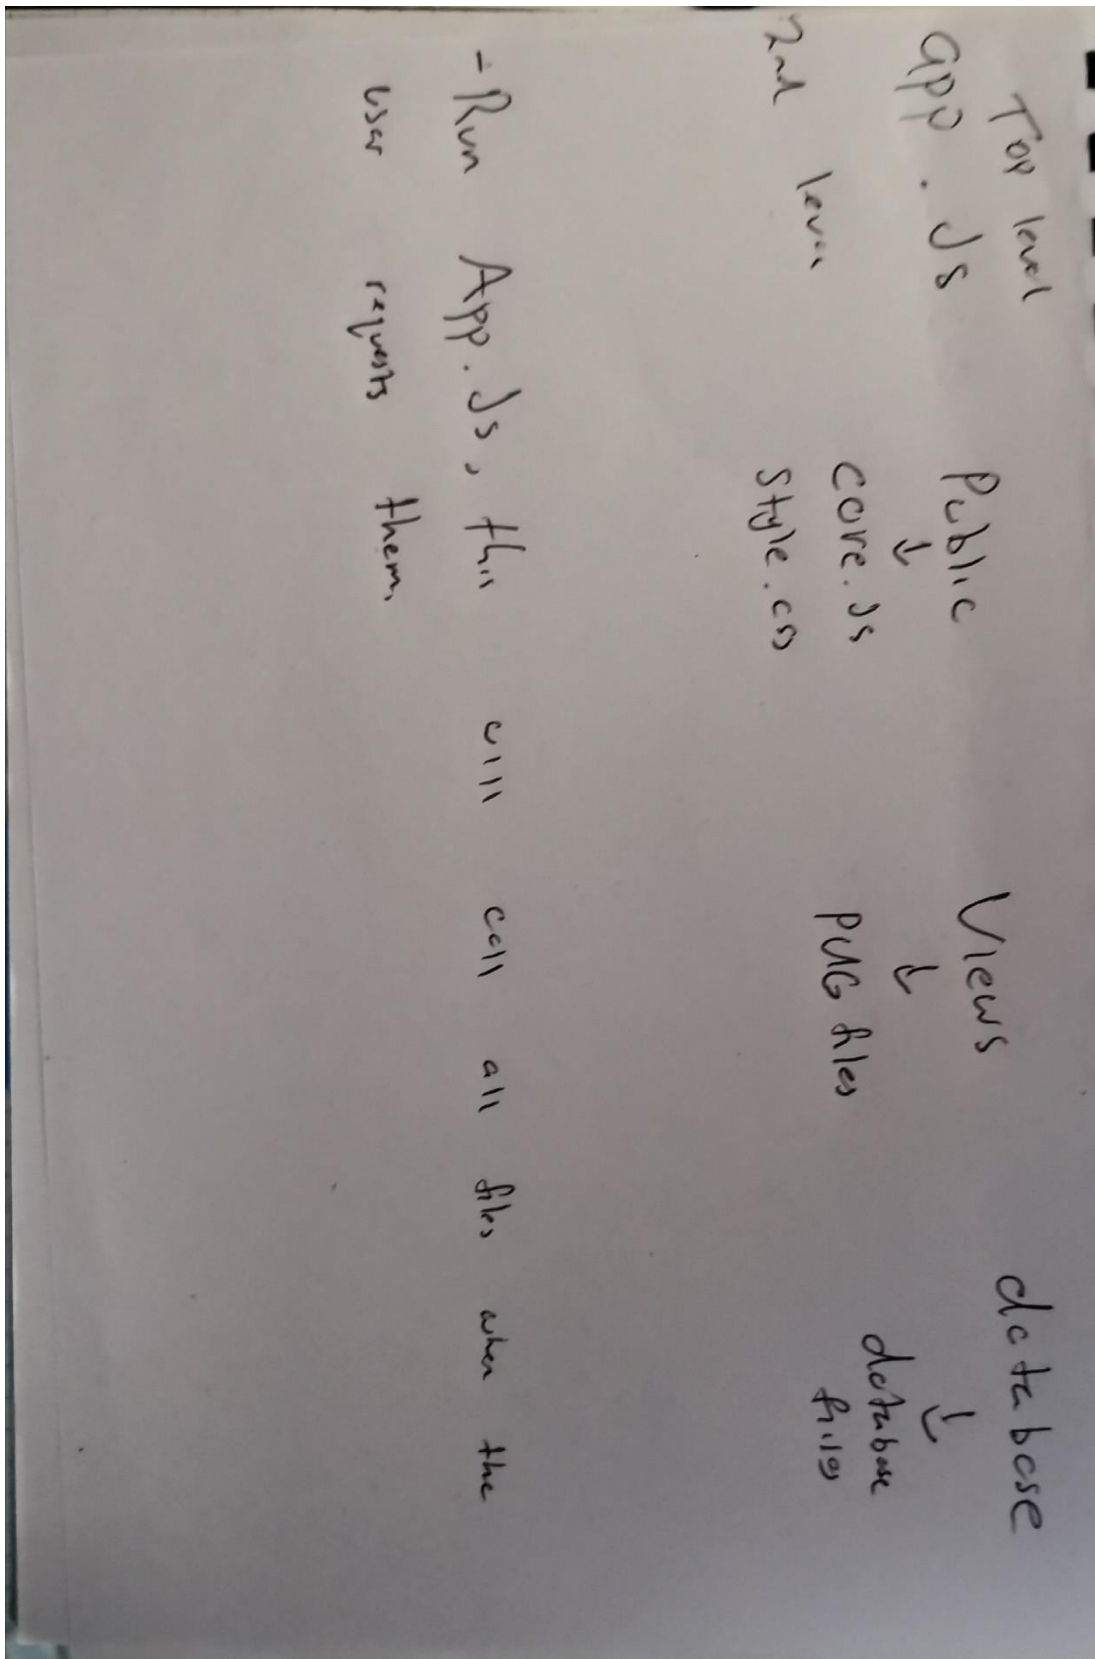 Top level
app.Js Public Views database
↓ ↓ ↓
2nd level core.Js PUG files database
style.css files
- Run App.Js, this will call all files when the
user requests them.